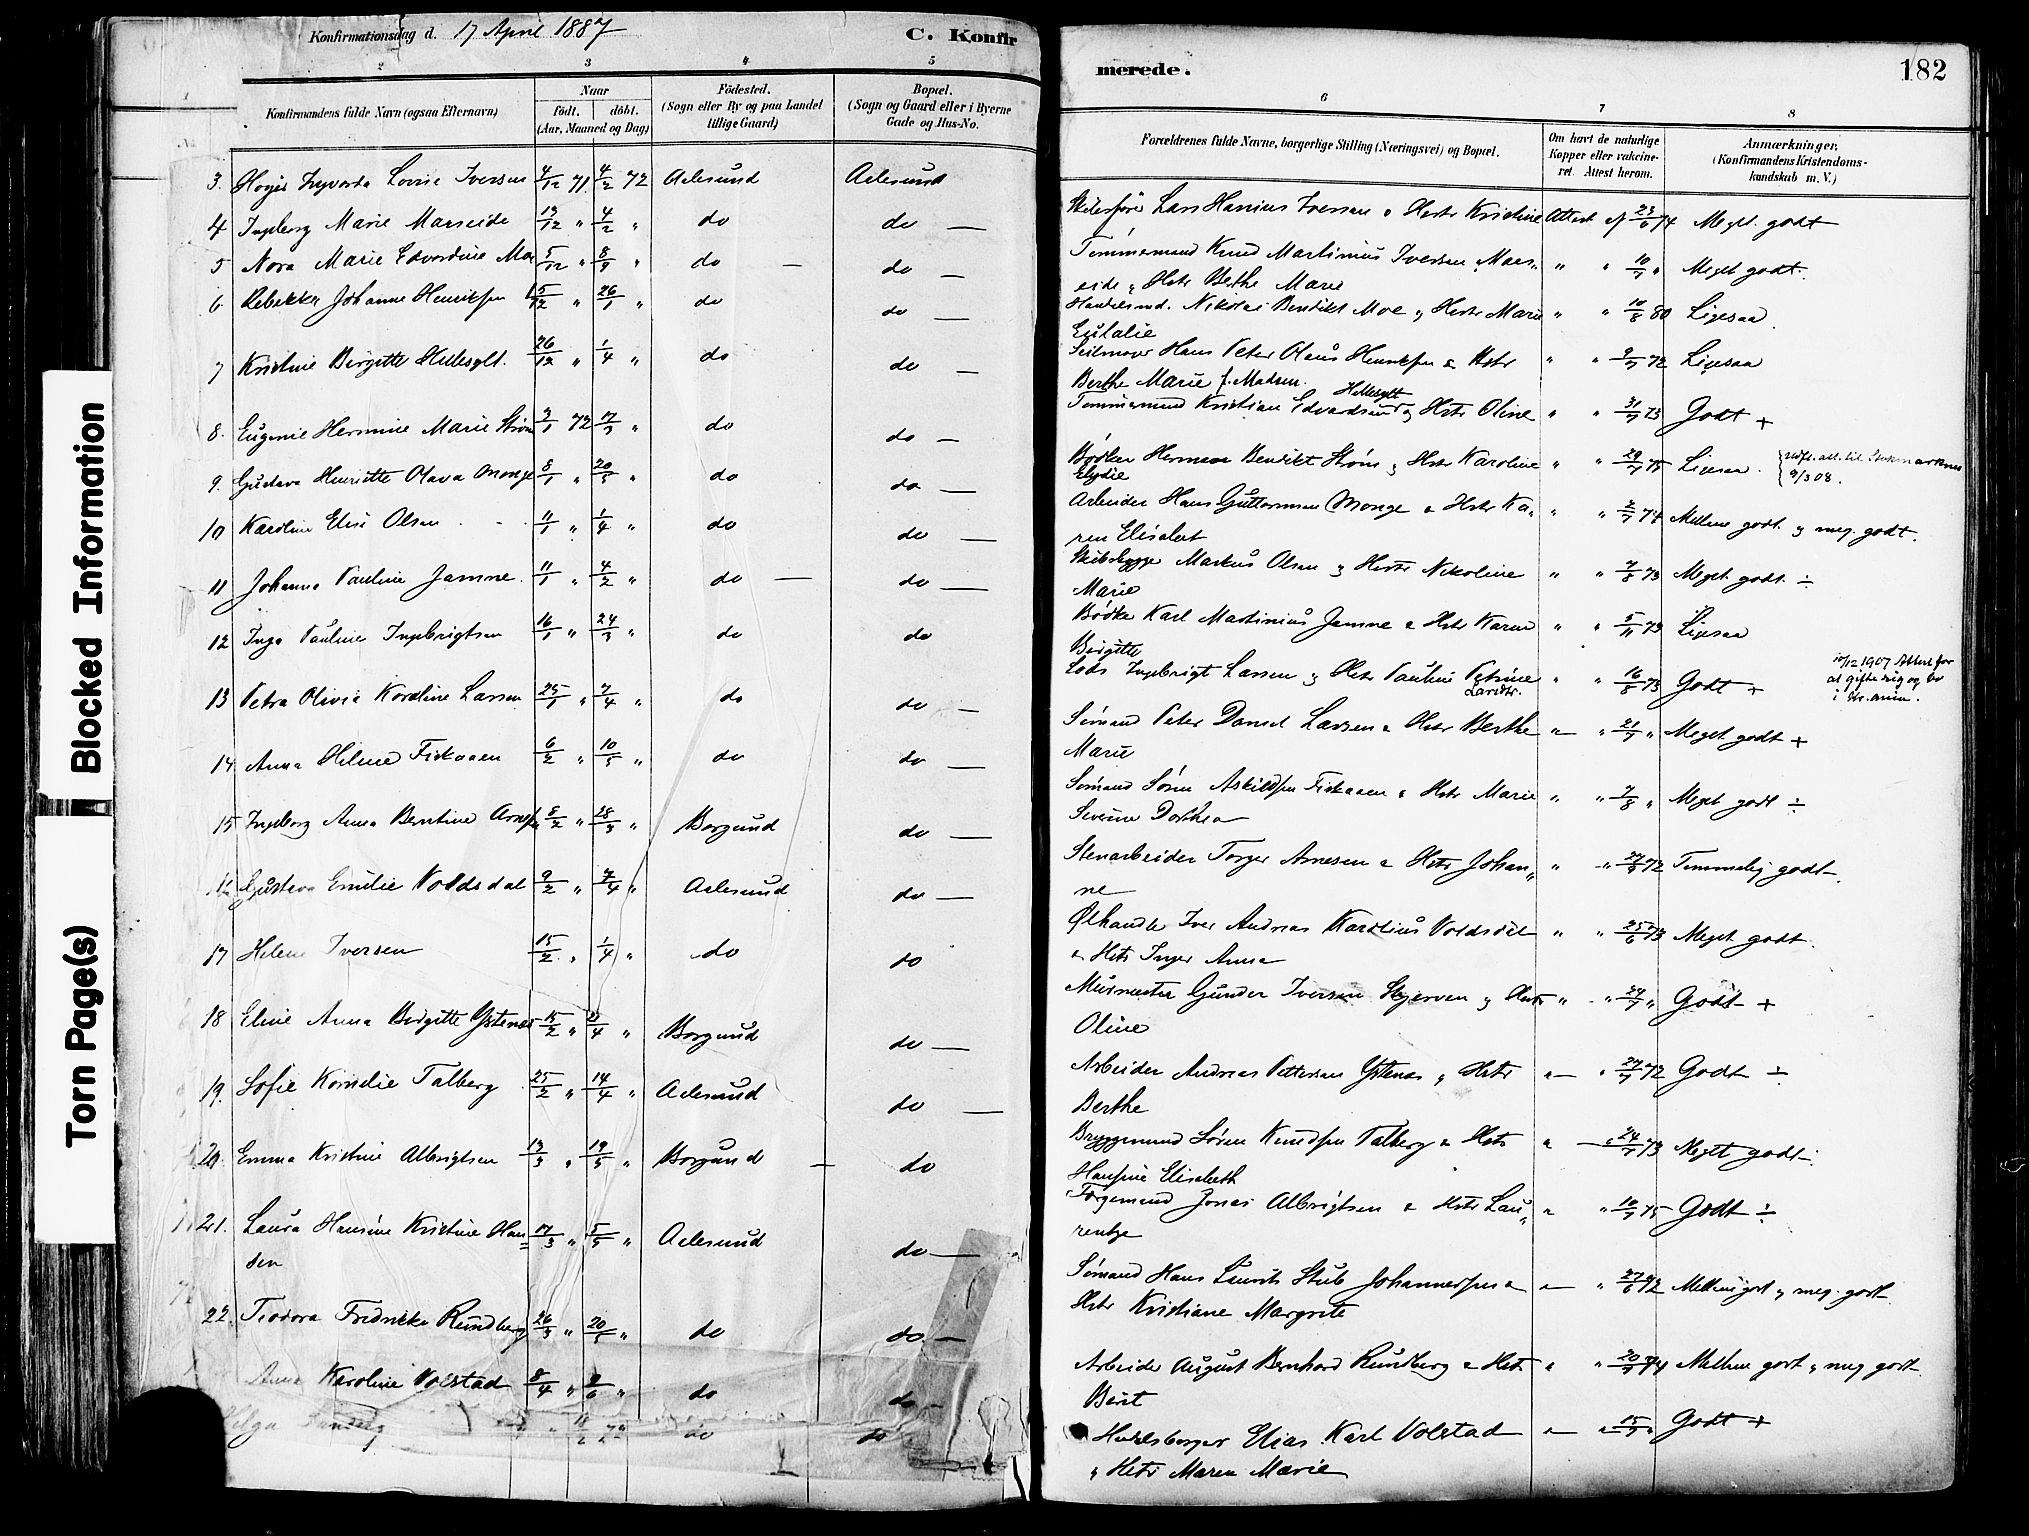 Konfirmationsdag d. 17 April 1887
C. Konfir
merede.
182
2 3 4 5
6 7 8
Konfirmandens fulde Navn (ogsaa Efternavn)
Naar
födt. döbt.
(Aar, Maaned og Dag)
Födested.
(Sogn eller By og paa Landet
tillige Gaard)
Bopæl.
(Sogn og Gaard eller i Byerne
Gade og Hus-No.
Forældrenes fulde Navne, borgerlige Stilling (Næringsvei) og Bopæl.
Om havt de naturlige
Kopper eller vakcine-
ret. Attest herom.
Anmærkninger.
(Konfirmandens Kristendoms-
kundskab m. V.)
3. Lovise Iversen 4/12 71 4/2 72 Aalesund Aalesund
Lars Iversen & Hstr Kristine Attest af 23/6 74 Meget godt
4 Ingeborg Marie Marseide 19/12 " 4/2 " do do —
Tømmermand Knud Martinius Iversen Mars-
eide & Hstr Berthe Marie " " 10/7 " Meget godt
5 Nora Marie Edvardine Moe 5/12 " 8/9 " do — do —
Handelsmd. Nikolai Benedikt Moe & Hstr Marie " " 10/8 80 Ligesaa
Eulalie
6 Rebekka Johanne Henriksen 15/12 " 26/1 " do do —
Seilmager Hans Peter Olaus Henriksen & Hstr " " 9/7 72 Ligesaa
Berthe Marie f. Madsen.
7 Kristine Birgitte Hellesylt. 26/12 " 1/4 " do do —
Hellesylt
Tømmermand Kristian Edvardsen & Hstr Oline " " 31/7 73 Godt +
8. Eugenie Hermine Marie Strøm 3/1 72 17/3 " do do —
Bødker Herman Bendikt Strøm & Hstr Karoline " " 29/7 75 Ligesaa.
Elydie
9/3 08.
9. Gustava Henriette Olava Monge 8/1 " 20/5 " do do —
Arbeider Hans Guttormsen Monge & Hstr Ka- " " 2/7 74 Mellem godt & meg. godt.
ren Elisabet
10 Karoline Elise Olsen 11/1 " 1/4 " do do —
Skibsbygger Markus Olsen & Hstr Nikoline " " 7/8 73 Meget godt ÷
Marie
11 Johanna Pauline Jamne. 11/1 " 4/2 " do — do —
Bødker Karl Martinius Jamne & Hstr Karen " " 5/11 73 Ligesaa
Birgitte
12 Inga Pauline Ingebrigtsen 16/1 " 24/3 " do do
Lods Ingebrigt Larsen & Hstr Pauline Petrine " " 16/8 73 Godt +
Larsdtr.
10/12 1907 Attest for
at gifte sig og bo
i
13 Petra Olivia Karoline Larsen 25/1 " 7/4 " do do —
Sømand Peter Daniel Larsen & Hstr Berthe " " 21/7 " Meget godt +
Marie
14 Anna Helene Fiskaaen 6/2 " 10/5 " do do —
Sømand Søren Askildsen Fiskaaen & Hstr Marie " " 7/8 " Meget godt ÷
Severine Dorthea
15 Ingeborg Anna Berntine Arnesen 8/2 " 28/3 " Borgund do —
Stenarbeider Torger Arnesen & Hstr Johan- " " 27/9 72 Temmelig godt
ne
16 Gustava Emilie Voldsdal 9/2 " 7/4 " Aalesund do —
Ølhandler Iver Andreas Karolius Voldsdal " " 25/6 73 Meget godt.
& Hstr Inger Anna
17 Helene Iversen 15/2 " 1/4 " do do
Murmester Gunder Iversen Skjerven & Hstr " " 24/7 " Godt +
Oline
18 Eline Anna Birgitte Ystenes 15/2 " 21/4 " Borgund do —
Arbeider Andreas Pettersen Ystenes & Hstr " " 27/7 72 Godt ÷
Berthe
19. Sofie Kornelie Talberg 25/2 " 14/4 " Aalesund do —
Bryggemand Søren Knudsen Talberg & Hstr " " 24/7 73 Meget godt ÷
Hansine Elisabeth
20. Emma Kristine Albrigtsen 13/3 " 19/5 " Borgund — do
Jonas Albrigtsen & Hstr Lau- " " 10/7 75 Godt ÷
rentze
21. Laura Hansine Kristine Han- 17/3 " 5/5 " Aalesund do —
sen
Sømand Hans Laurits Stub Johannessen & " " 27/6 72 Mellem godt & meg. godt
Hstr Kristiane Margrete
22. Teodora Fredrikke Rundberg 26/3 " 20/5 " do do —
Arbeider August Bernhard Rundberg & Hstr " " 20/7 74 Mellem godt & meg godt
Berit
Anna Karoline Volstad 8/4 " 9/6 " do do —
Handelsborger Elias Karl Volstad " " 15/7 " Godt +
& Hstr Maren Marie
Helga do do
Blocked Information
Torn Page(s)